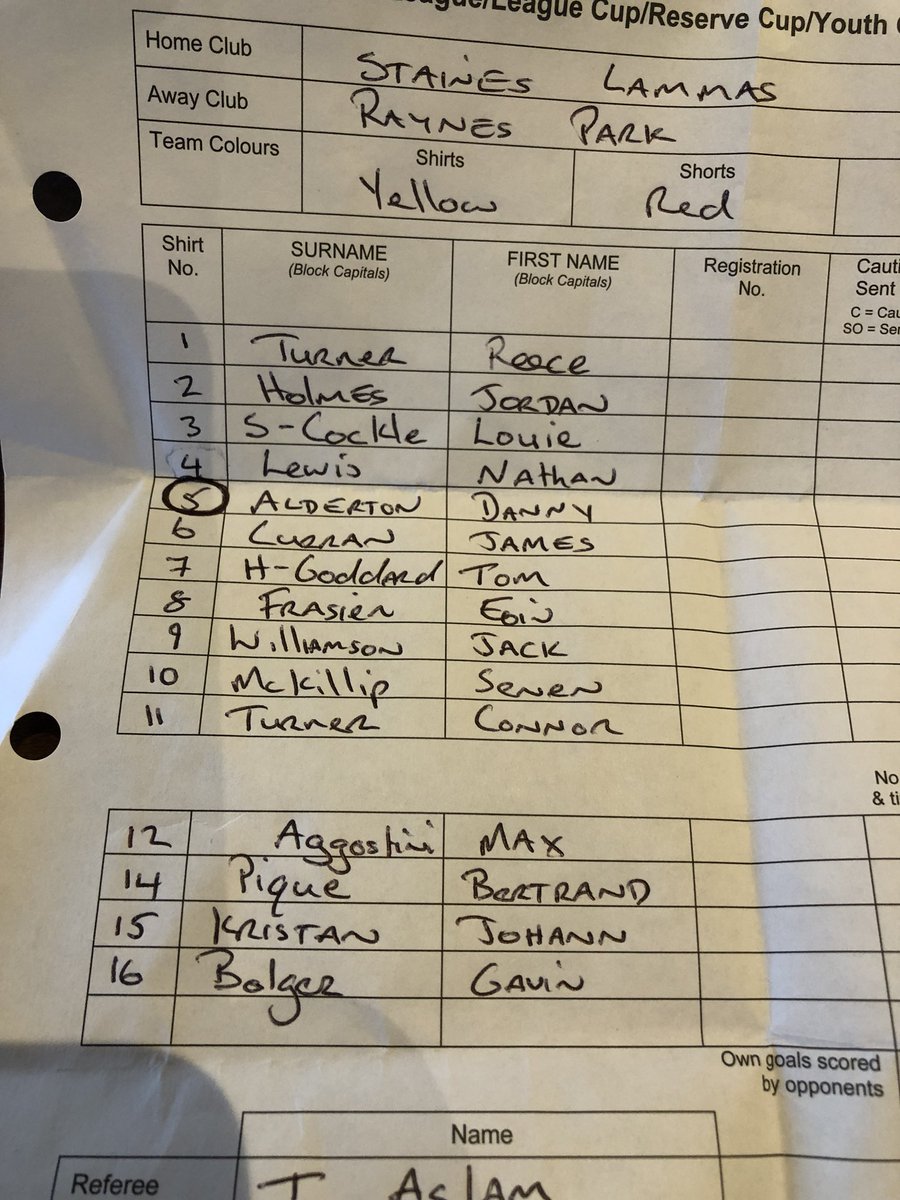 League/League Cup/Reserve Cup/Youth
Home Club STAINES LAMMAS
Away Club RAYNES PARK
Team Colours Shirts Yellow Shorts Red
Shirt No. SURNAME (Block Capitals) FIRST NAME (Block Capitals) Registration No. Cauti Sent C = Cau SO = Sen
1 TURNER Reece
2 HOLMES JORDAN
3 S-Cockle Louie
4 Lewis NATHAN
5 ALDERTON DANNY
6 CURRAN JAMES
7 H-GoddARD TOM
8 FRASIER EOIN
9 WILLIAMSON JACK
10 McKillip SENEN
11 TURNER CONNOR
No
& ti
12 Aggostini MAX
14 Pique BERTRAND
15 KRISTAN JOHANN
16 Bolger GAVIN
Own goals scored
by opponents
Name
Referee T Aslam